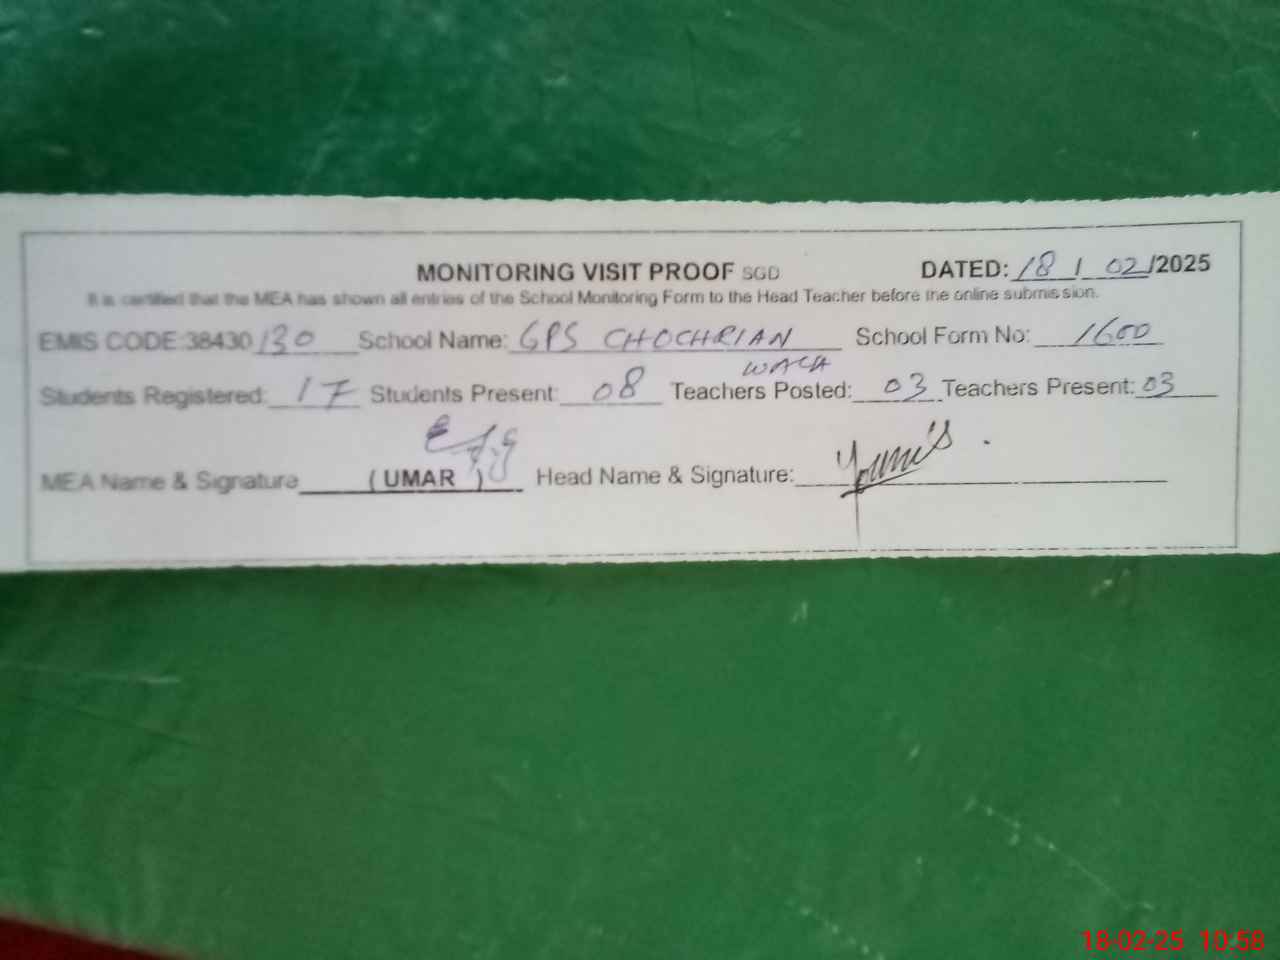 MONITORING VISIT PROOF SGD DATED: 18 / 02 /2025
It is certified that the MEA has shown all entries of the School Monitoring Form to the Head Teacher before the online submission.
EMIS CODE:38430130 School Name: GPS CHOCHRIAN School Form No: 1600
WALA
Students Registered: 17 Students Present: 08 Teachers Posted: 03 Teachers Present: 03
MEA Name & Signature (UMAR ) Head Name & Signature: Younis
18-02-25 10:58